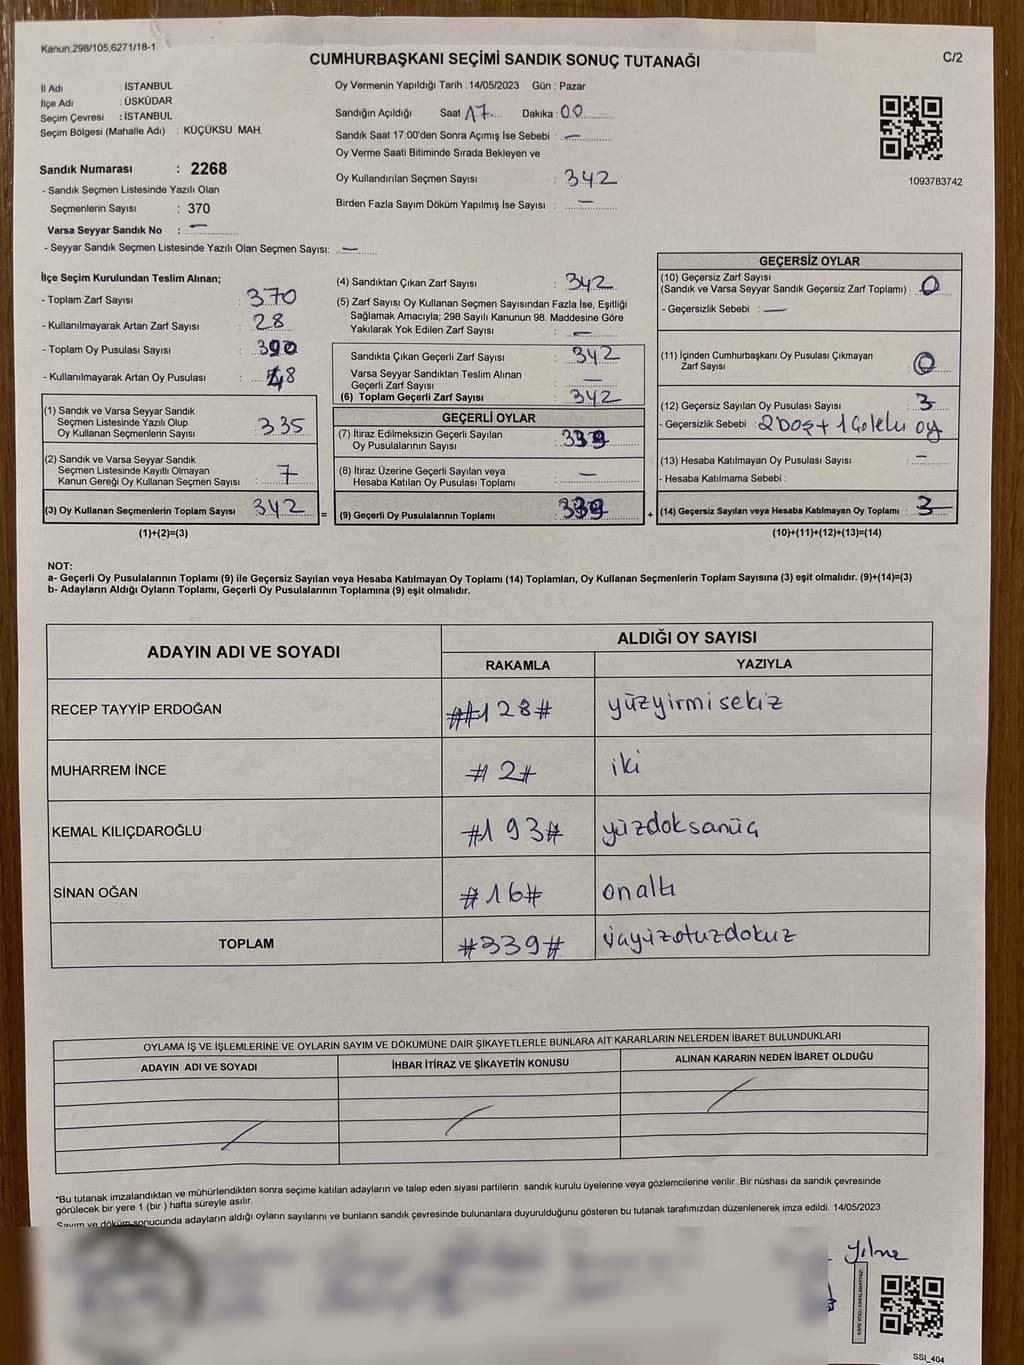 Kanun:298/105;6271/18-1
CUMHURBAŞKANI SEÇİMİ SANDIK SONUÇ TUTANAĞI
C/2
İl Adı : İSTANBUL
İlçe Adı : ÜSKÜDAR
Seçim Çevresi : İSTANBUL
Seçim Bölgesi (Mahalle Adı) : KÜÇÜKSU MAH.
Sandık Numarası : 2268
- Sandık Seçmen Listesinde Yazılı Olan
Seçmenlerin Sayısı : 370
Varsa Seyyar Sandık No : —
- Seyyar Sandık Seçmen Listesinde Yazılı Olan Seçmen Sayısı: —
Oy Vermenin Yapıldığı Tarih : 14/05/2023 Gün : Pazar
Sandığın Açıldığı Saat 17 Dakika : 00
Sandık Saat 17:00'den Sonra Açımış İse Sebebi : —
Oy Verme Saati Bitiminde Sırada Bekleyen ve
Oy Kullandırılan Seçmen Sayısı : 342
Birden Fazla Sayım Döküm Yapılmış İse Sayısı : —
1093783742
İlçe Seçim Kurulundan Teslim Alınan;
- Toplam Zarf Sayısı : 370
- Kullanılmayarak Artan Zarf Sayısı : 28
- Toplam Oy Pusulası Sayısı : 390
- Kullanılmayarak Artan Oy Pusulası : 48
(1) Sandık ve Varsa Seyyar Sandık
Seçmen Listesinde Yazılı Olup
Oy Kullanan Seçmenlerin Sayısı : 335
(2) Sandık ve Varsa Seyyar Sandık
Seçmen Listesinde Kayıtlı Olmayan
Kanun Gereği Oy Kullanan Seçmen Sayısı : 7
(3) Oy Kullanan Seçmenlerin Toplam Sayısı : 342 =
(1)+(2)=(3)
(4) Sandıktan Çıkan Zarf Sayısı : 342
(5) Zarf Sayısı Oy Kullanan Seçmen Sayısından Fazla İse, Eşitliği
Sağlamak Amacıyla; 298 Sayılı Kanunun 98. Maddesine Göre
Yakılarak Yok Edilen Zarf Sayısı : —
Sandıkta Çıkan Geçerli Zarf Sayısı : 342
Varsa Seyyar Sandıktan Teslim Alınan
Geçerli Zarf Sayısı : —
(6) Toplam Geçerli Zarf Sayısı : 342
GEÇERLİ OYLAR
(7) İtiraz Edilmeksizin Geçerli Sayılan
Oy Pusulalarının Sayısı : 339
(8) İtiraz Üzerine Geçerli Sayılan veya
Hesaba Katılan Oy Pusulası Toplamı : —
(9) Geçerli Oy Pusulalarının Toplamı : 339 +
GEÇERSİZ OYLAR
(10) Geçersiz Zarf Sayısı
(Sandık ve Varsa Seyyar Sandık Geçersiz Zarf Toplamı) : 0
- Geçersizlik Sebebi : —
(11) İçinden Cumhurbaşkanı Oy Pusulası Çıkmayan
Zarf Sayısı : 0
(12) Geçersiz Sayılan Oy Pusulası Sayısı : 3
- Geçersizlik Sebebi : 2 boş + 1 oy
(13) Hesaba Katılmayan Oy Pusulası Sayısı : —
- Hesaba Katılmama Sebebi :
(14) Geçersiz Sayılan veya Hesaba Katılmayan Oy Toplamı : 3
(10)+(11)+(12)+(13)=(14)
NOT:
a- Geçerli Oy Pusulalarının Toplamı (9) ile Geçersiz Sayılan veya Hesaba Katılmayan Oy Toplamı (14) Toplamları, Oy Kullanan Seçmenlerin Toplam Sayısına (3) eşit olmalıdır. (9)+(14)=(3)
b- Adayların Aldığı Oyların Toplamı, Geçerli Oy Pusulalarının Toplamına (9) eşit olmalıdır.
ADAYIN ADI VE SOYADI
ALDIĞI OY SAYISI
RAKAMLA YAZIYLA
RECEP TAYYİP ERDOĞAN ##128# yüzyirmisekiz
MUHARREM İNCE #2# iki
KEMAL KILIÇDAROĞLU #193# yüzdoksanüç
SİNAN OĞAN #16# onaltı
TOPLAM #339# üçyüzotuzdokuz
OYLAMA İŞ VE İŞLEMLERİNE VE OYLARIN SAYIM VE DÖKÜMÜNE DAİR ŞİKAYETLERLE BUNLARA AİT KARARLARIN NELERDEN İBARET BULUNDUKLARI
ADAYIN ADI VE SOYADI İHBAR İTİRAZ VE ŞİKAYETİN KONUSU ALINAN KARARIN NEDEN İBARET OLDUĞU
*Bu tutanak imzalandıktan ve mühürlendikten sonra seçime katılan adayların ve talep eden siyasi partilerin sandık kurulu üyelerine veya gözlemcilerine verilir .Bir nüshası da sandık çevresinde
görülecek bir yere 1 (bir ) hafta süreyle asılır.
Sayım ve döküm sonucunda adayların aldığı oyların sayılarını ve bunların sandık çevresinde bulunanlara duyurulduğunu gösteren bu tutanak tarafımızdan düzenlenerek imza edildi. 14/05/2023
SSI_404